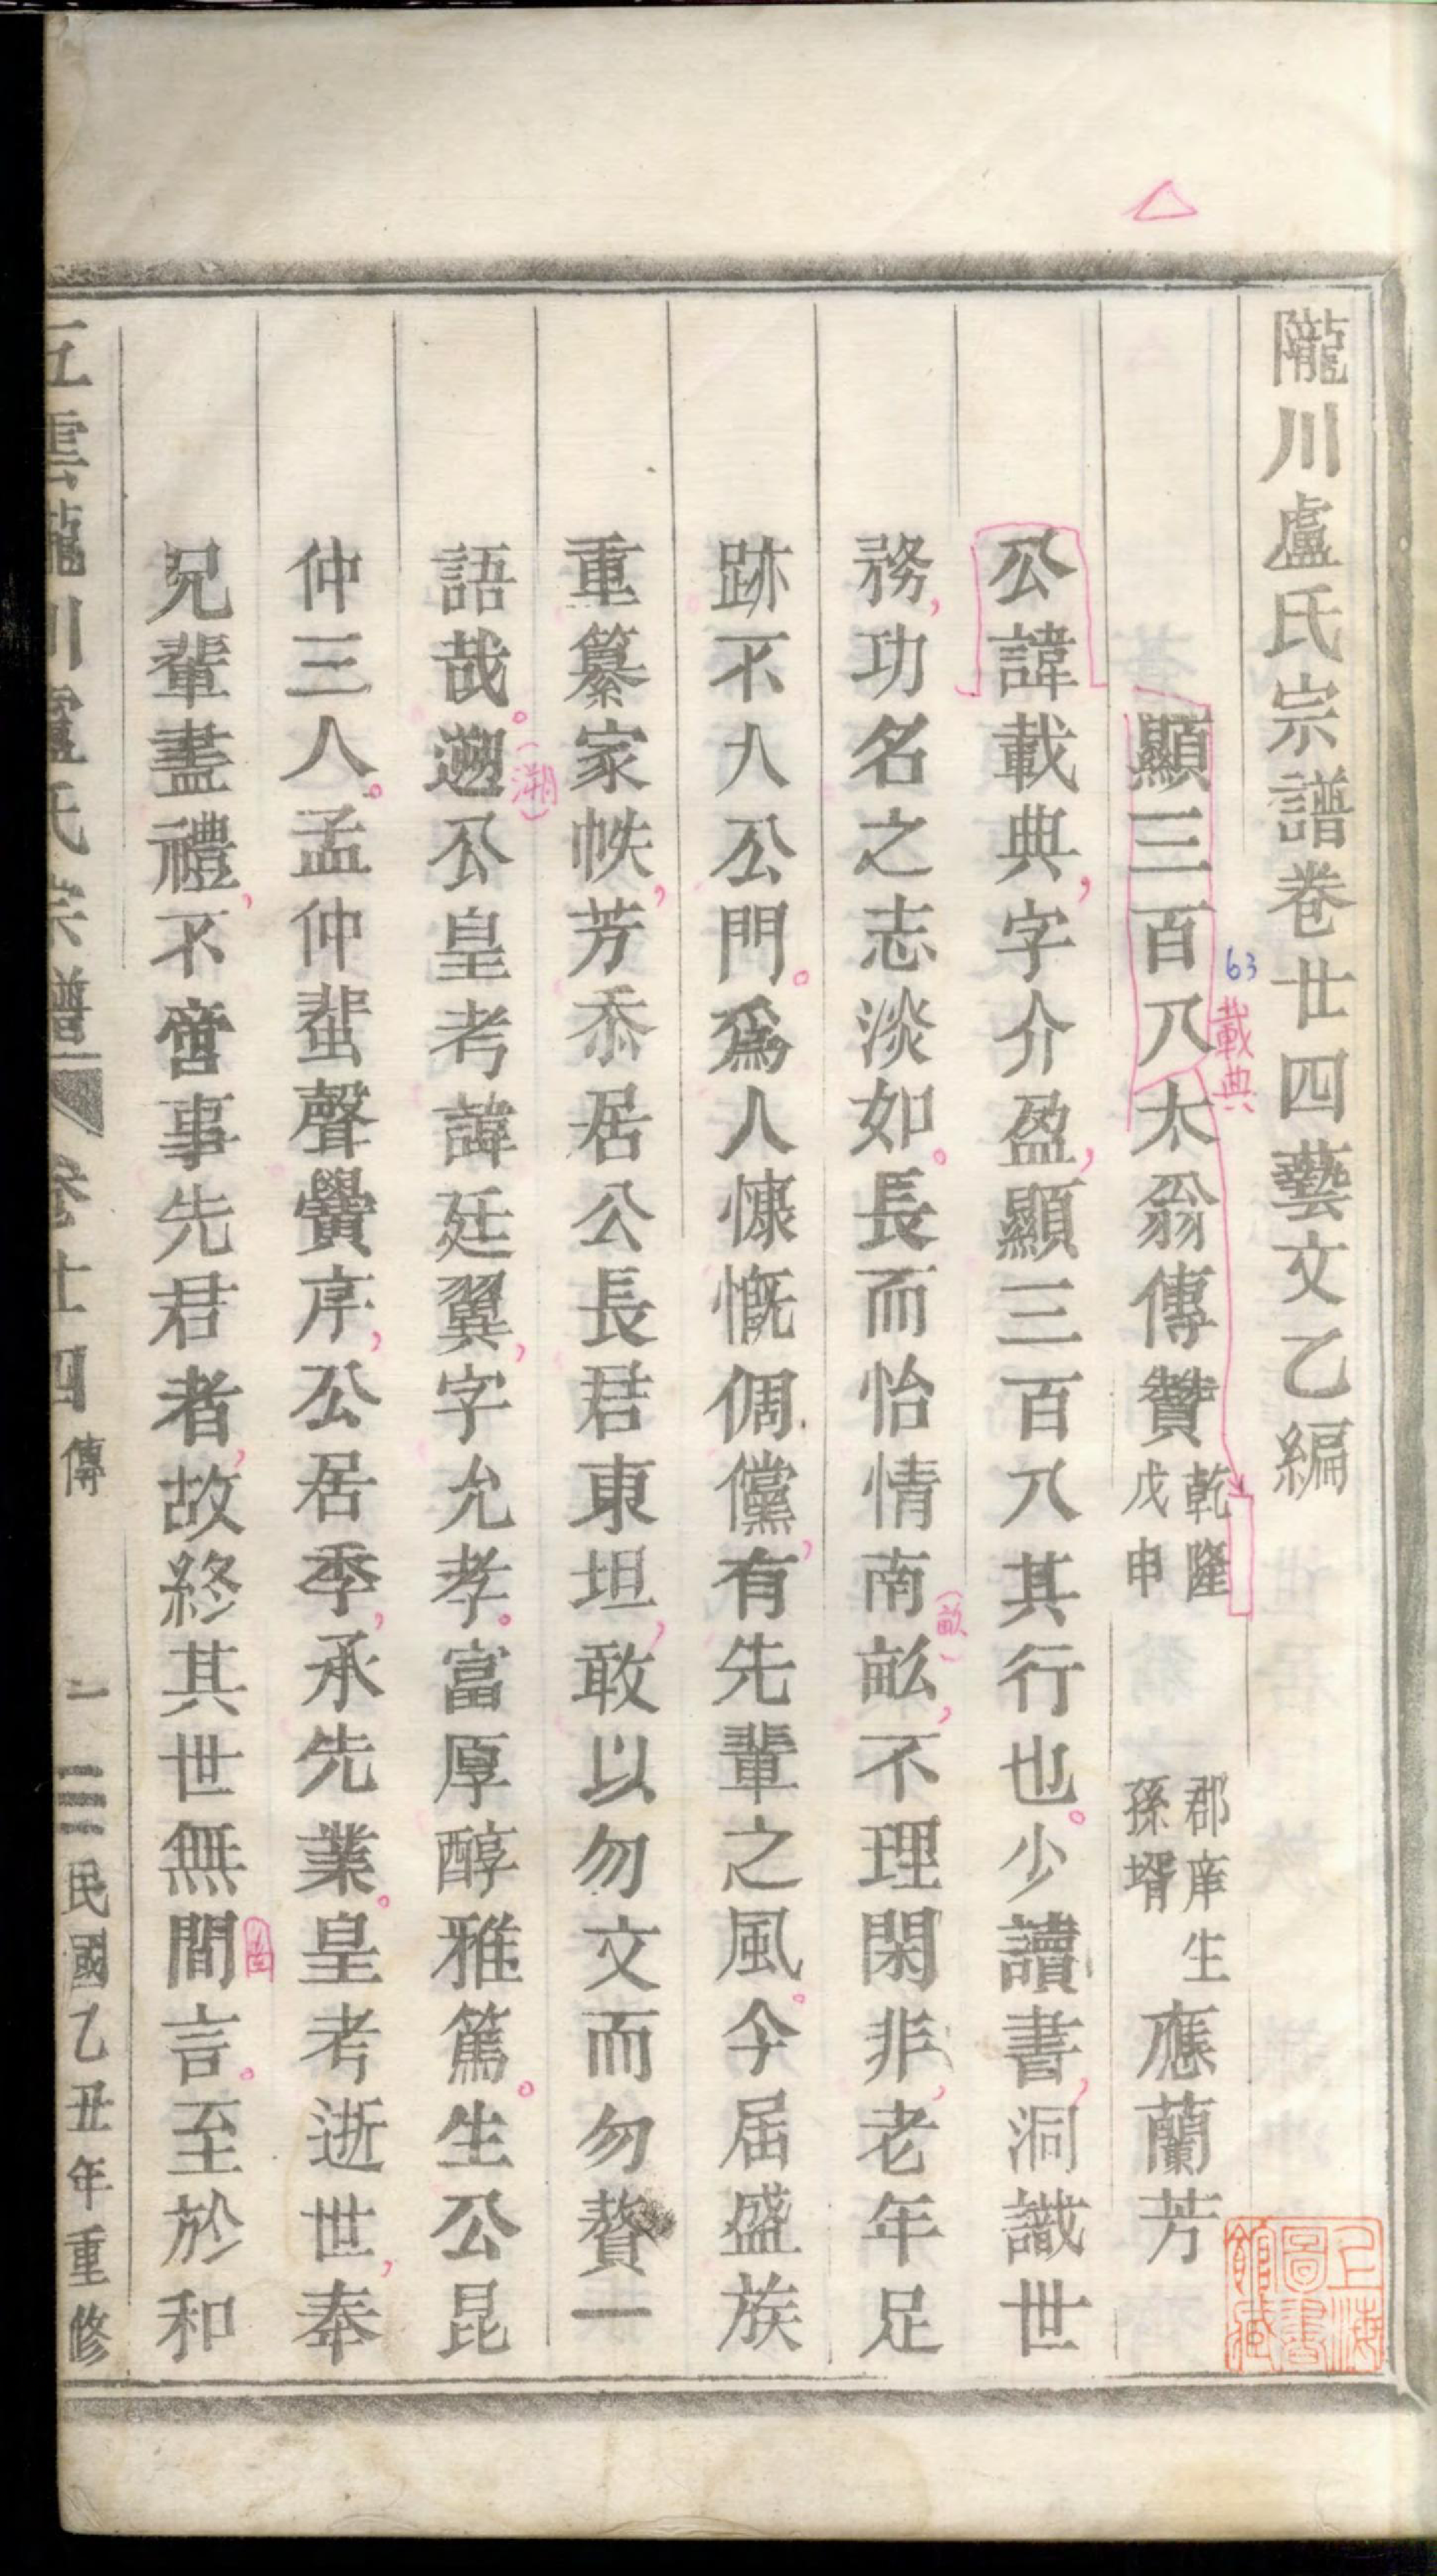 隴川盧氏宗譜卷廿四藝文乙編
顯三百八太翁傳贊 乾隆戊申 郡庠生孫壻 應蘭芳
63
載典
公諱載典，字介盈，顯三百八其行也。少讀書，洞識世
務，功名之志淡如。長而怡情南畝，不理閑非，老年足
（畝）
跡不入公門。爲人慷慨倜儻，有先輩之風。今屆盛族
重纂家帙，芳忝居公長君東坦，敢以勿文而勿贅一
語哉。遡公皇考諱廷翼，字允孝。富厚醇雅篤。生公昆
（溯）
仲三人。孟仲蜚聲黌序，公居季，承先業。皇考逝世，奉
兄輩盡禮，不啻事先君者，故終其世無間言。至於和
五雲隴川盧氏宗譜 卷廿四 傳 一 民國乙丑年重修
上海圖書館藏